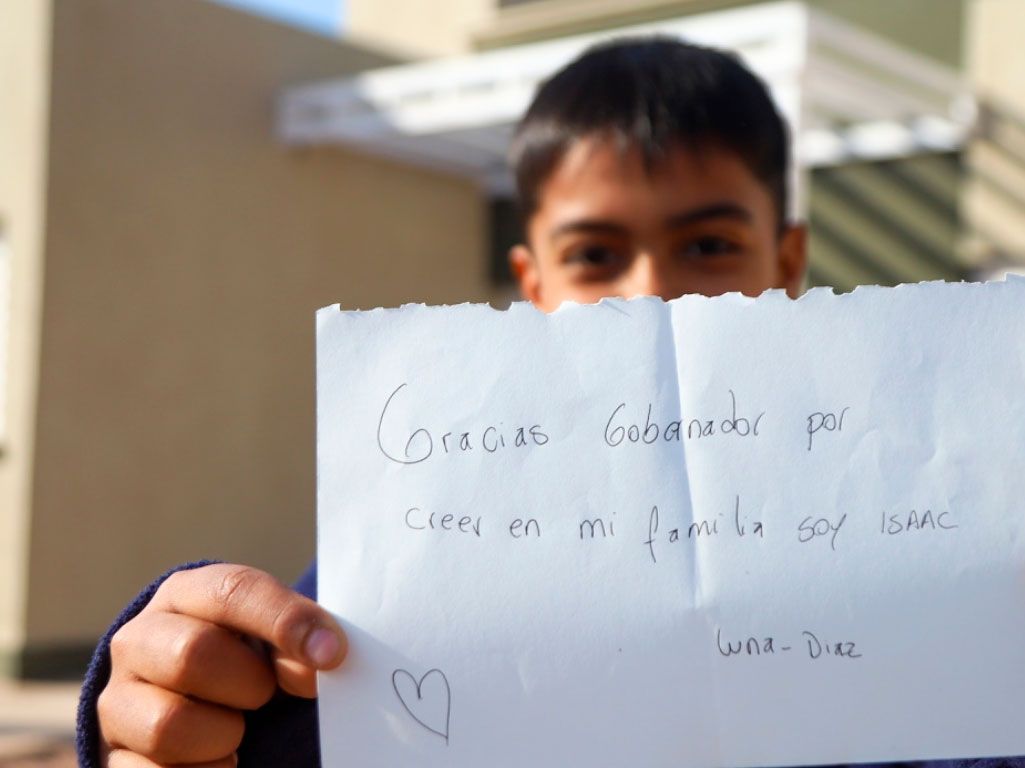 Gracias Gobernador por
creer en mi familia soy ISAAC
Luna - Diaz